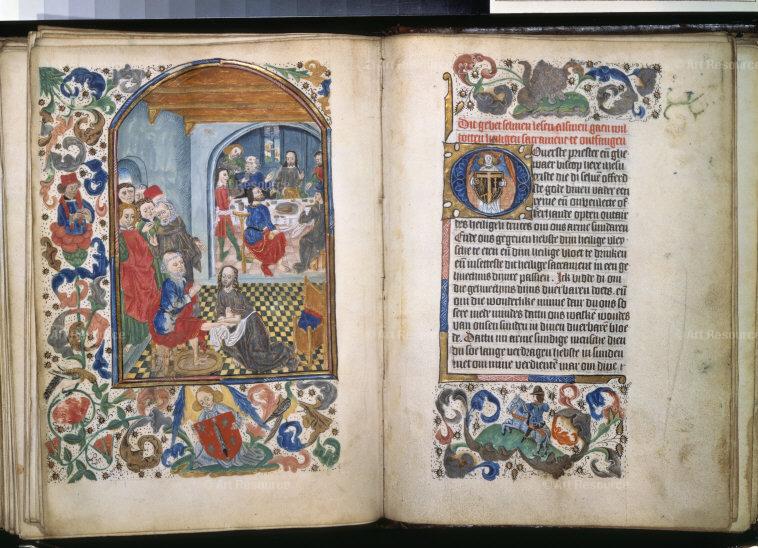 Dit gebet selmen lesen alsmen gaen wil
totten heiligen sacrament te ontfangen
Ouerste priester eñ ghe
waer biscop here iesu
criste die di seluen offerd
ste gode dinen vader een
reine eñ onbeulecte of
ferhande opten outaer
des heiligen cruces om ons arme sundaren
Ende ons gegeuen hebste dijn heilige vley
sche te eten eñ dijn heilige bloet te drinken
eñ insetteste dit heilige sacrament in een ge
huechnis dijnre passien. Ick bidde di om
die gehuechnis dijns duerbaren doets, eñ
om die wonderlike minne daer du ons so
sere mede mindes dattu ons
van onsen sunden in dinen duerbare bloe
de. Dattu mi arme sundige mensche dien
du soe lange verdragen hebste in sunden
niet om mine verdiente mar om dine
© Art Resource